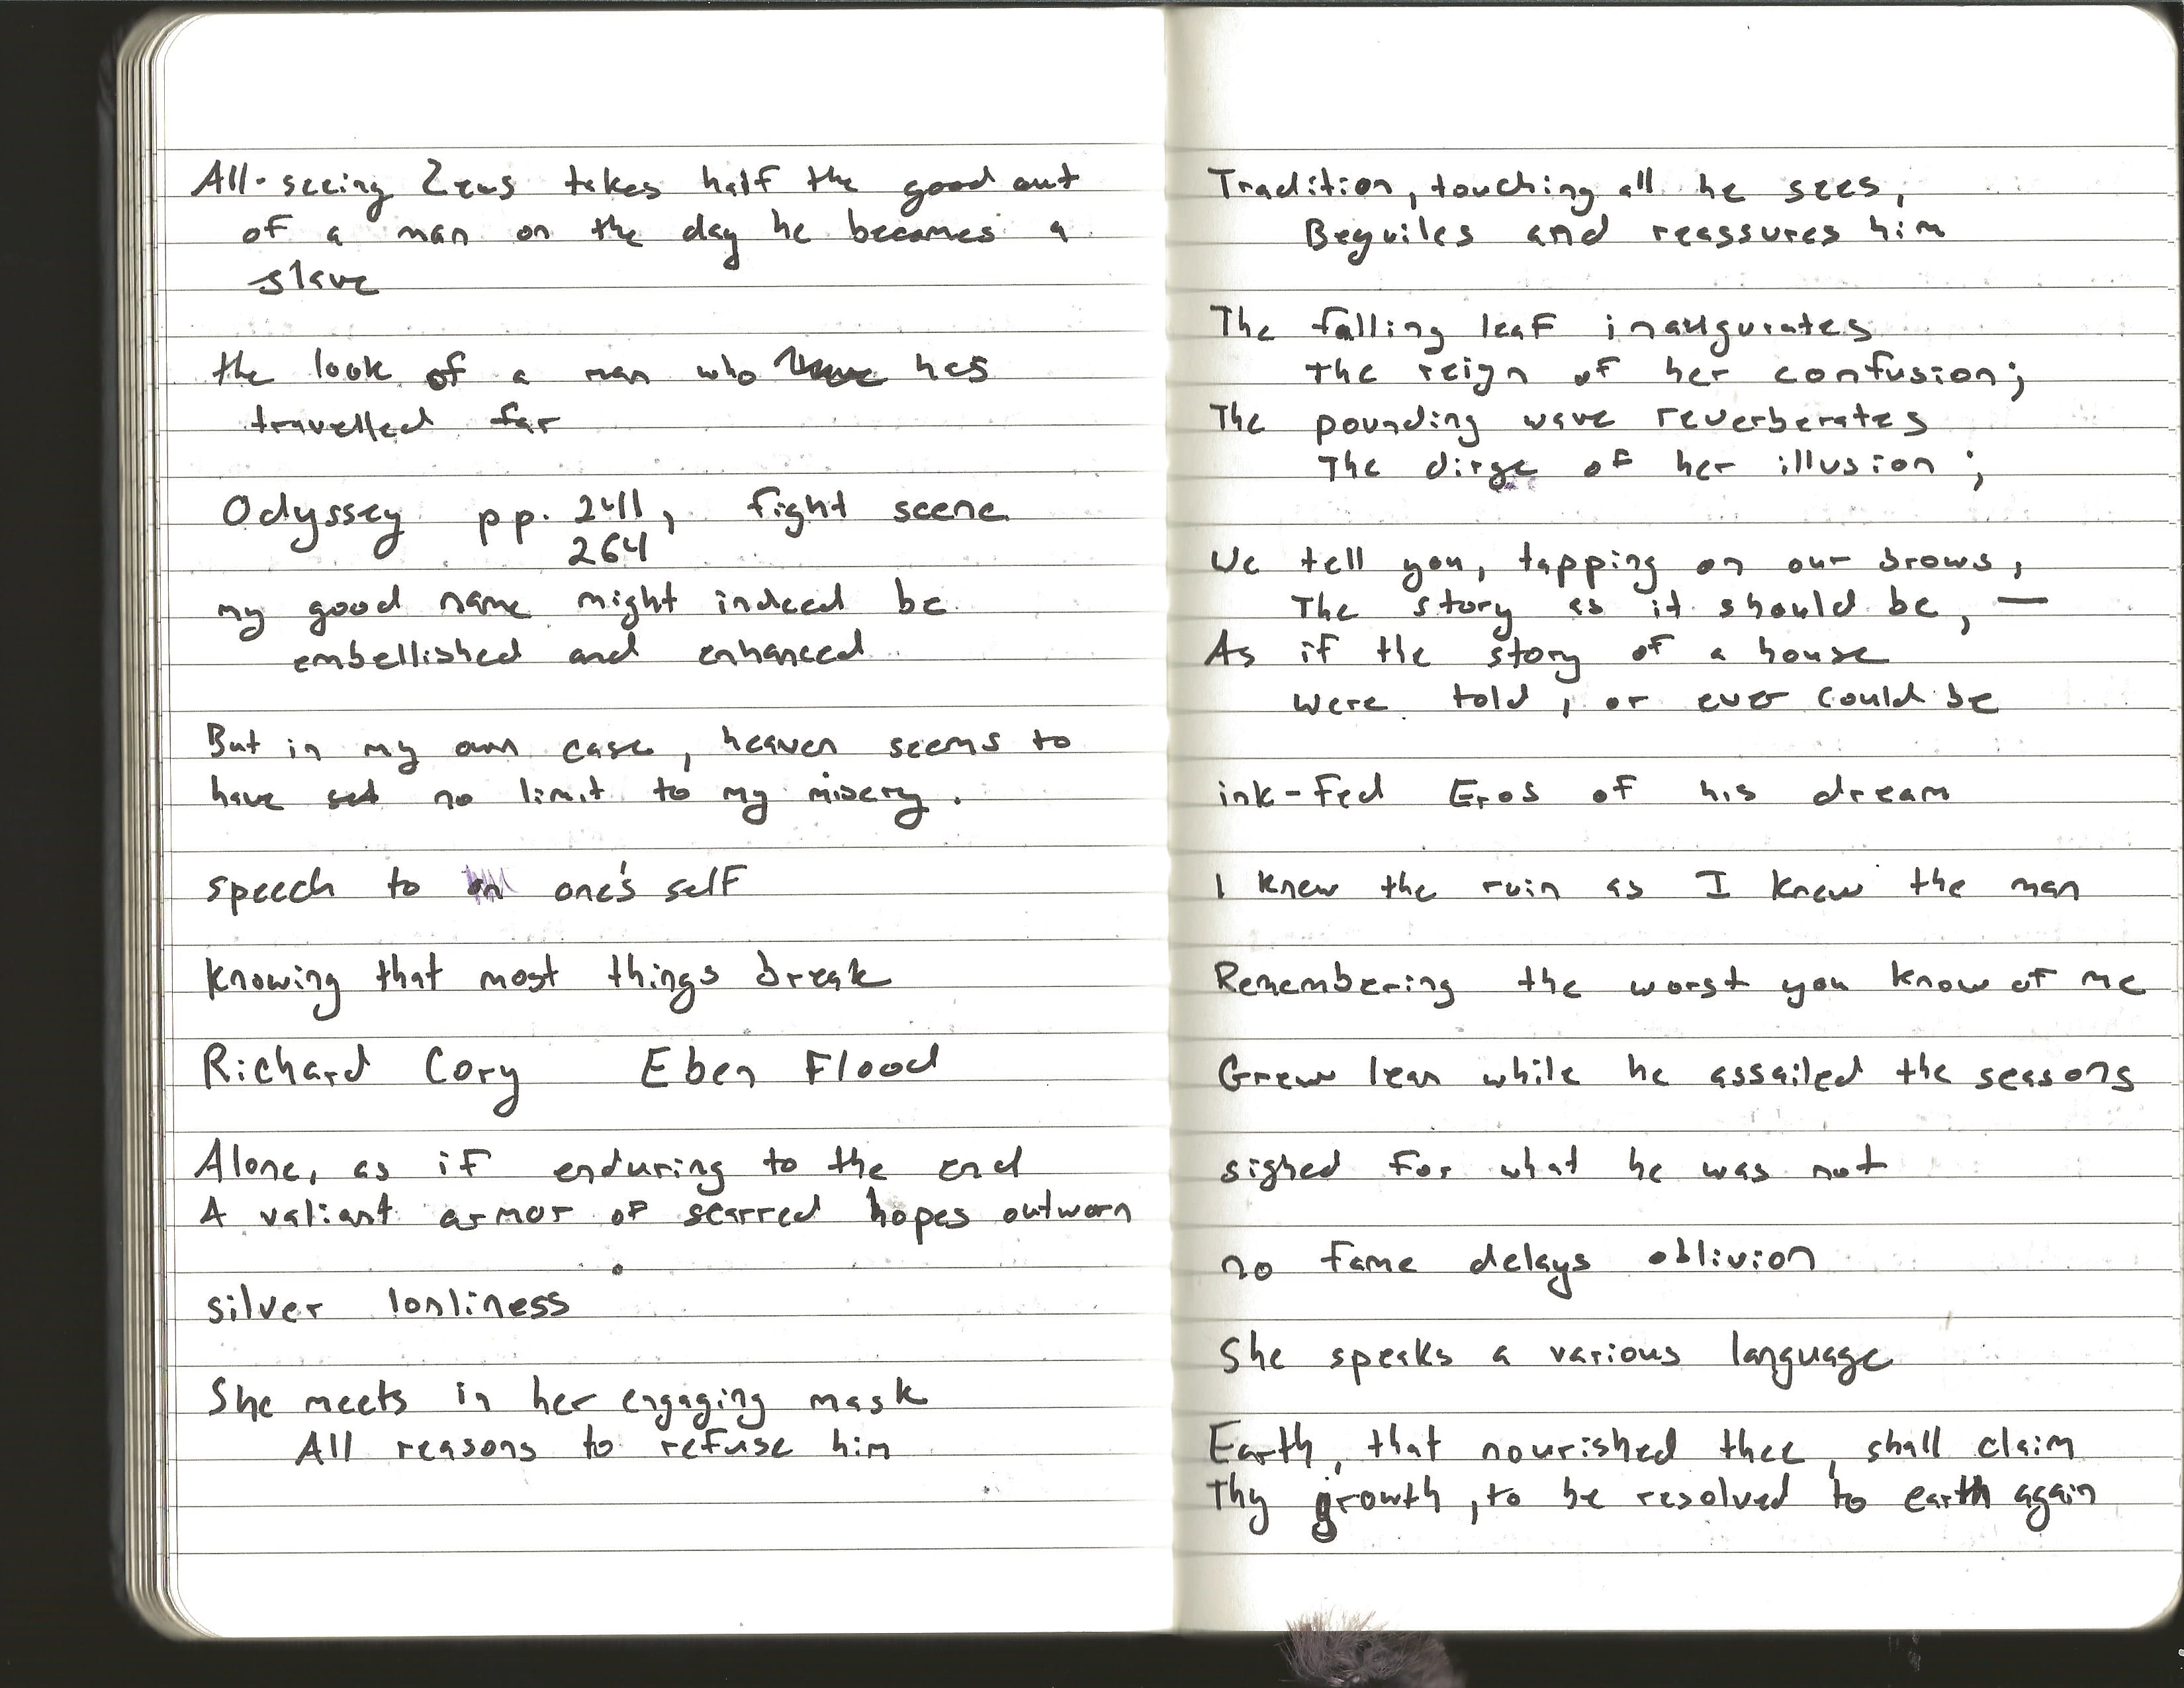 All-seeing Zeus takes half the good out
of a man on the day he becomes a
slave
the look of a man who has
travelled far
Odyssey pp. 241, fight scene
264
my good name might indeed be
embellished and enhanced
But in my own case, heaven seems to
have set no limit to my misery.
speech to one's self
Knowing that most things break
Richard Cory Eben Flood
Alone, as if enduring to the end
A valiant armor of scarred hopes outworn
silver lonliness
She meets in her engaging mask
All reasons to refuse him
Tradition, touching all he sees,
Beguiles and reassures him
The falling leaf inaugurates
The reign of her confusion;
The pounding wave reverberates
The dirge of her illusion;
We tell you, tapping on our brows,
The story as it should be, —
As if the story of a house
were told, or ever could be
ink-fed Eros of his dream
I knew the ruin as I knew the man
Remembering the worst you know of me
Grew lean while he assailed the seasons
sighed for what he was not
no fame delays oblivion
She speaks a various language
Earth, that nourished thee, shall claim
Thy growth, to be resolved to earth again